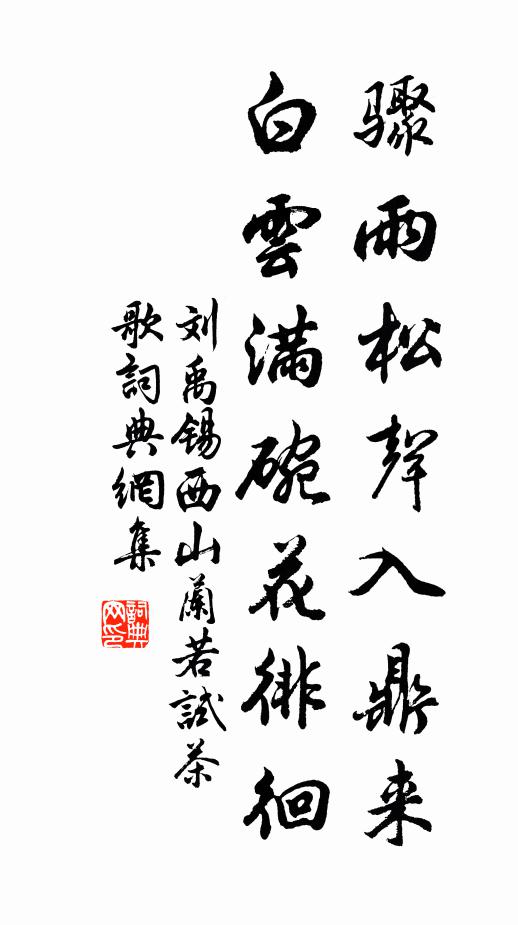 骤雨松聲入鼎来
白雲满碗花徘徊
刘禹锡西山蘭若試茶
歌詞典網集
詞典网印